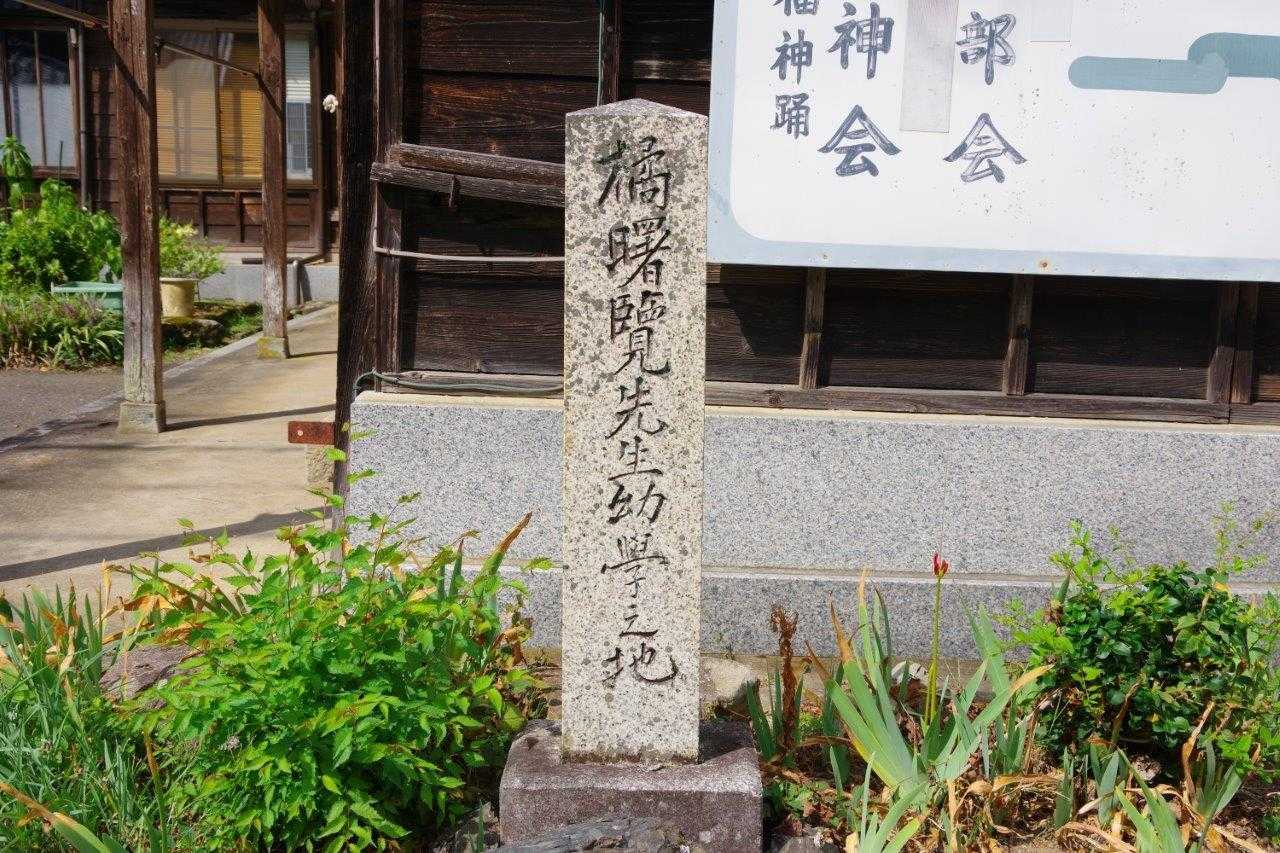 部会
神会
福神踊
橘曙覽先生幼學之地